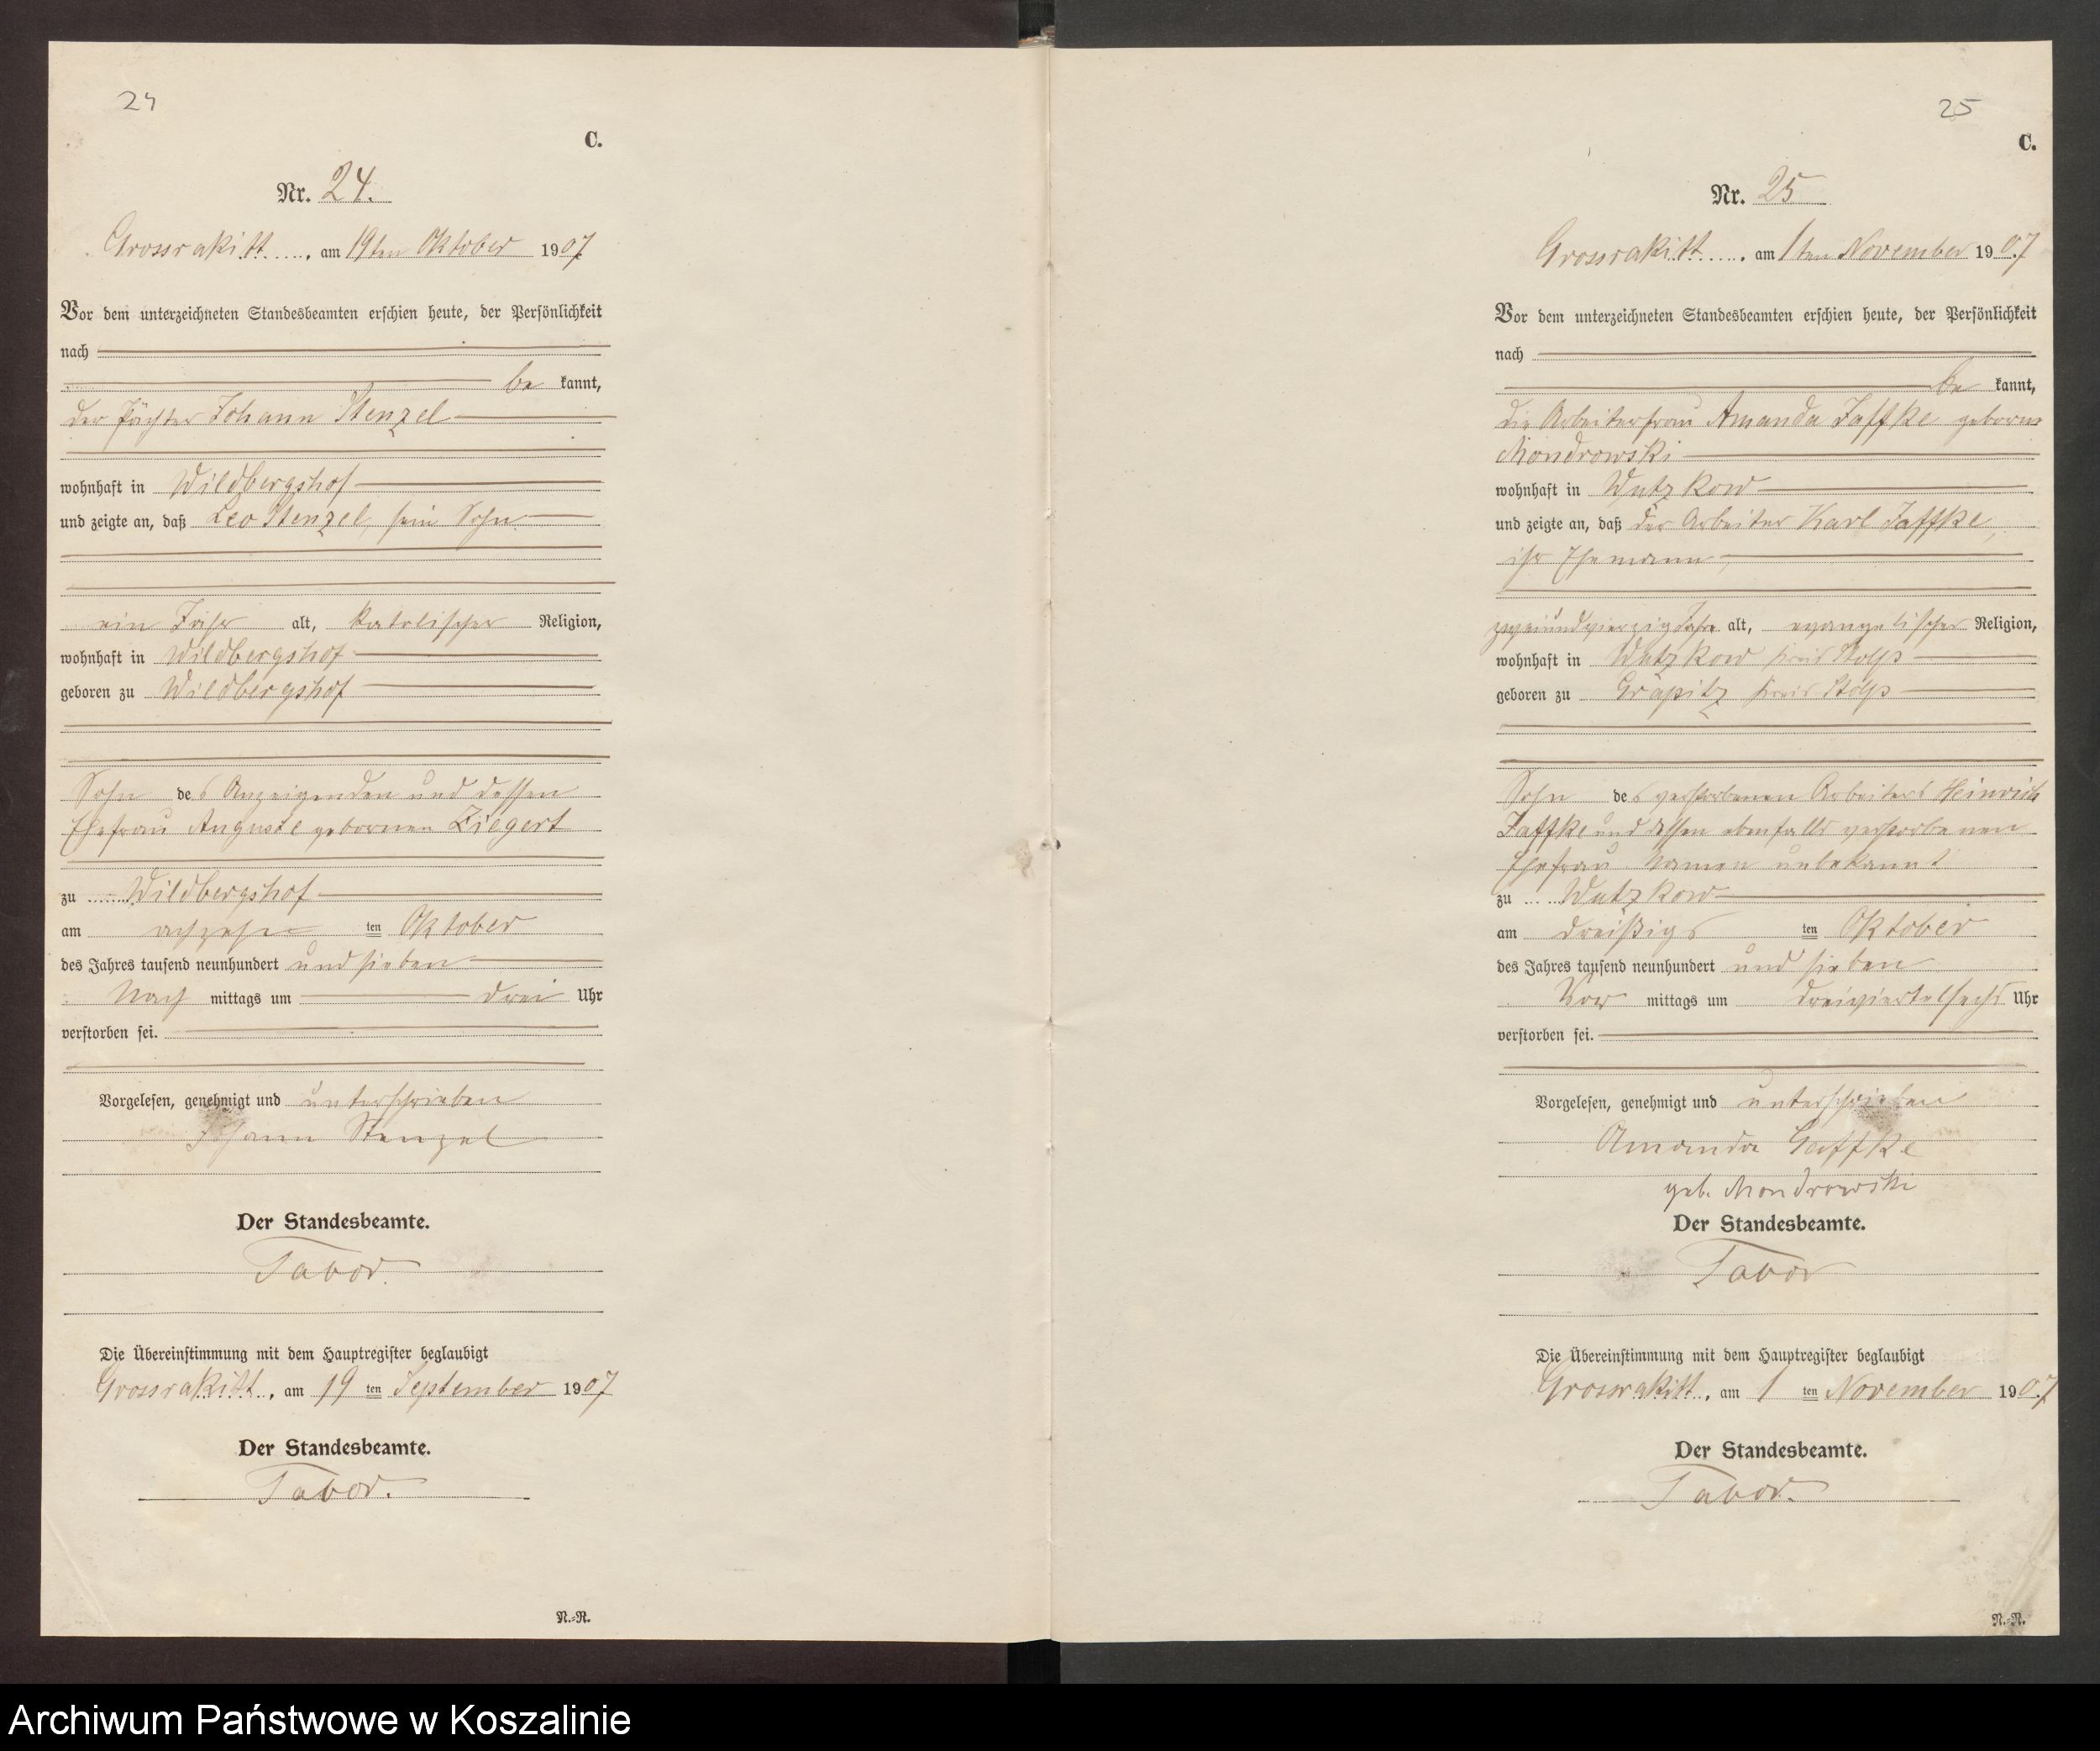 24
C.
Nr. 24.
Grossrakitt, am 19ten Oktober 1907
Vor dem unterzeichneten Standesbeamten erschien heute, der Persönlichkeit
nach
be kannt,
der Pächter Johann Stenzel
wohnhaft in Wildbergshof
und zeigte an, daß Leo Stenzel, sein Sohn
ein Jahr alt, katolischer Religion,
wohnhaft in Wildbergshof
geboren zu Wildbergshof
Sohn des Anzeigenden und dessen
Ehefrau Auguste gebornen Ziegert
zu Wildbergshof
am achzehn ten Oktober
des Jahres tausend neunhundert und sieben
Nach mittags um drei Uhr
verstorben sei.
Vorgelesen, genehmigt und unterschrieben
Johann Stenzel
Der Standesbeamte.
Tabor.
Die Übereinstimmung mit dem Hauptregister beglaubigt
Grossrakitt, am 19 ten September 1907
Der Standesbeamte.
Tabor.
N.-R.
25
C.
Nr. 25
Grossrakitt, am 1ten November 1907
Vor dem unterzeichneten Standesbeamten erschien heute, der Persönlichkeit
nach
be kannt,
die Arbeiterfrau Amanda Jaffke geborne
Mondrowski
wohnhaft in Wutzkow
und zeigte an, daß der Arbeiter Karl Jaffke,
ihr Ehemann,
zweiundvierzig Jahre alt, evangelischer Religion,
wohnhaft in Wutzkow Kreis Stolp
geboren zu Grapitz Kreis Stolp
Sohn des verstorbenen Arbeiters Heinrich
Jaffke und dessen ebenfalls verstorbenen
Ehefrau Namen unbekannt
zu Wutzkow
am dreißigs ten Oktober
des Jahres tausend neunhundert und sieben
Vor mittags um dreiviertelsechs Uhr
verstorben sei.
Vorgelesen, genehmigt und unterschrieben
Amanda Gaffke
geb. Mondrowski
Der Standesbeamte.
Tabor
Die Übereinstimmung mit dem Hauptregister beglaubigt
Grossrakitt, am 1 ten November 1907
Der Standesbeamte.
Tabor.
N.-R.
Archiwum Państwowe w Koszalinie